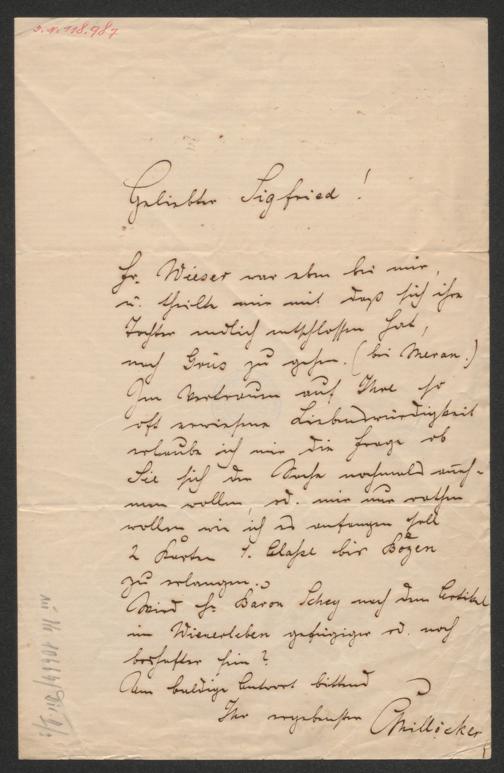 J. N. 118.987
Geliebter Sigfried!
Fr. Wieser war eben bei mir,
u. theilte mir mit daß sich ihre
Tochter endlich entschlossen hat,
nach Gries zu gehen. (bei Meran.)
Im Vertrauen auf Ihre so
oft erwiesene Liebenswürdigkeit
erlaube ich mir die Frage ob
Sie sich der Sache nochmals anneh-
men wollen, od. mir nur rathen
wollen wie ich es anfangen soll
2 Karten 1. Claße bis Bozen
zu erlangen.
Wird Hr. Baron Schey nach dem Artikel
im Wienerleben gefügiger od. noch
boshafter sein?
Um baldige Antwort bittend
Ihr ergebenster CMillöcker